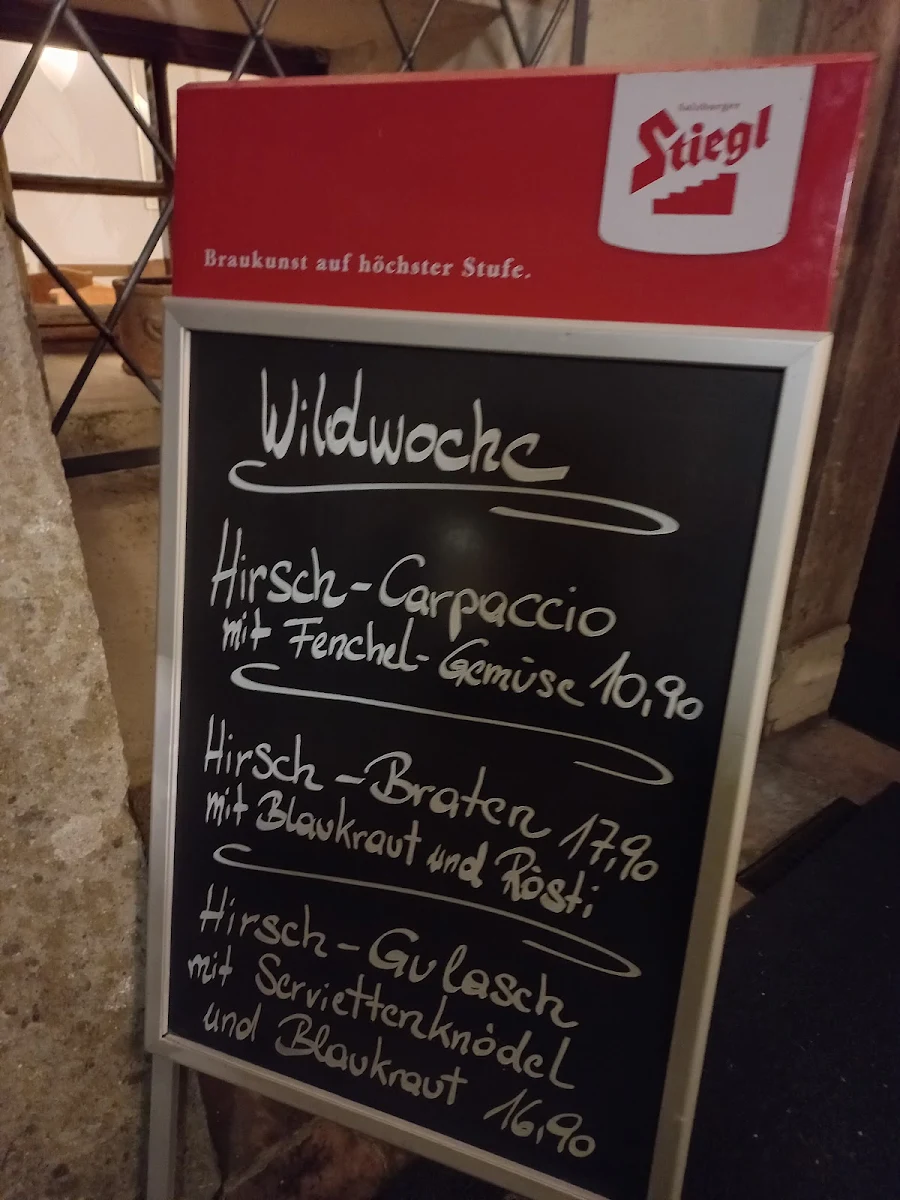 Salzburger
Stiegl
Braukunst auf höchster Stufe.
Wildwoche
Hirsch-Carpaccio
mit Fenchel-Gemüse 10,90
Hirsch-Braten 17,90
mit Blaukraut und Rösti
Hirsch-Gulasch
mit Serviettenknödel
und Blaukraut 16,90